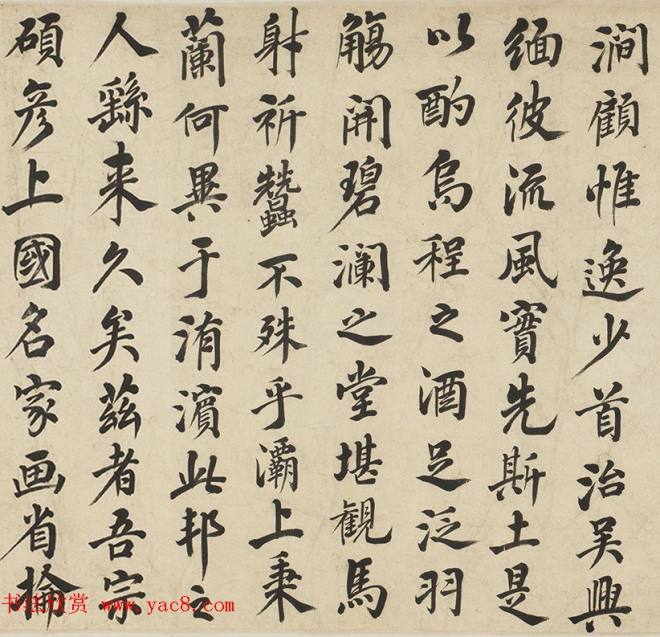 澗顧惟逸少首治吳興
緬彼流風實先斯土是
以酌烏程之酒足泛羽
觴開碧瀾之堂堪觀馬
射祈蠶不殊乎灞上秉
蘭何異于洧濱此邦之
人繇来久矣茲者吾宗
碩彦上國名家画省掄
书法欣赏 www.yac8.com